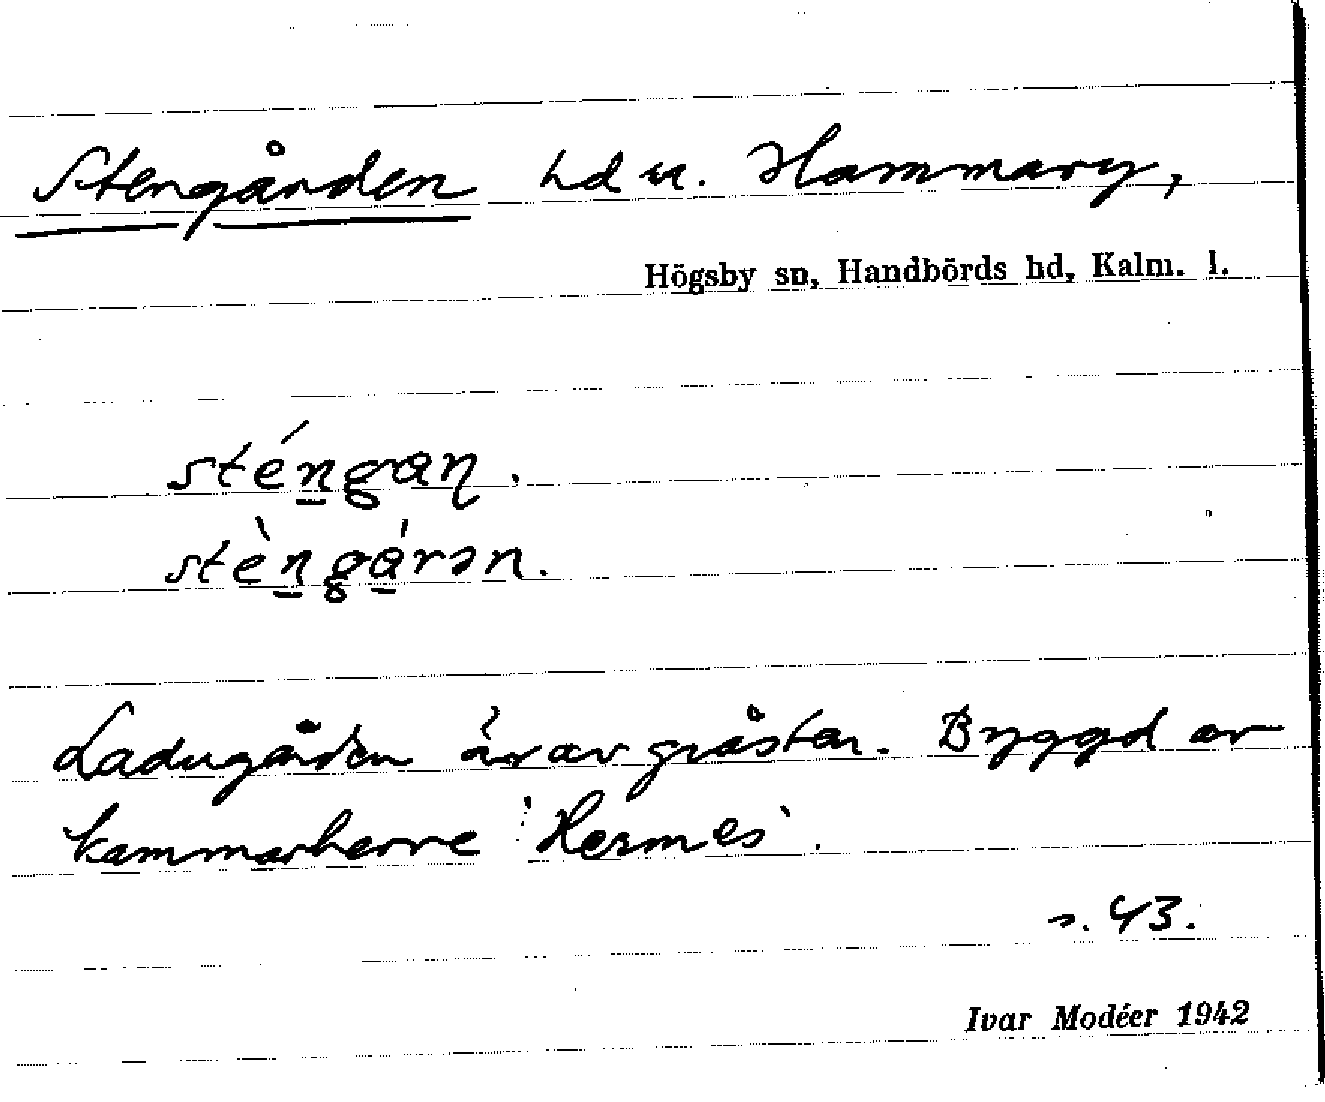 Stengården hd u. Hammary,
Högsby sn, Handbörds hd, Kalm. l.
sténgaɳ.
stèngárən.
Ladugården är av gråsten. Byggd av
kammarherre Hermes.
s. 43.
Ivar Modéer 1942